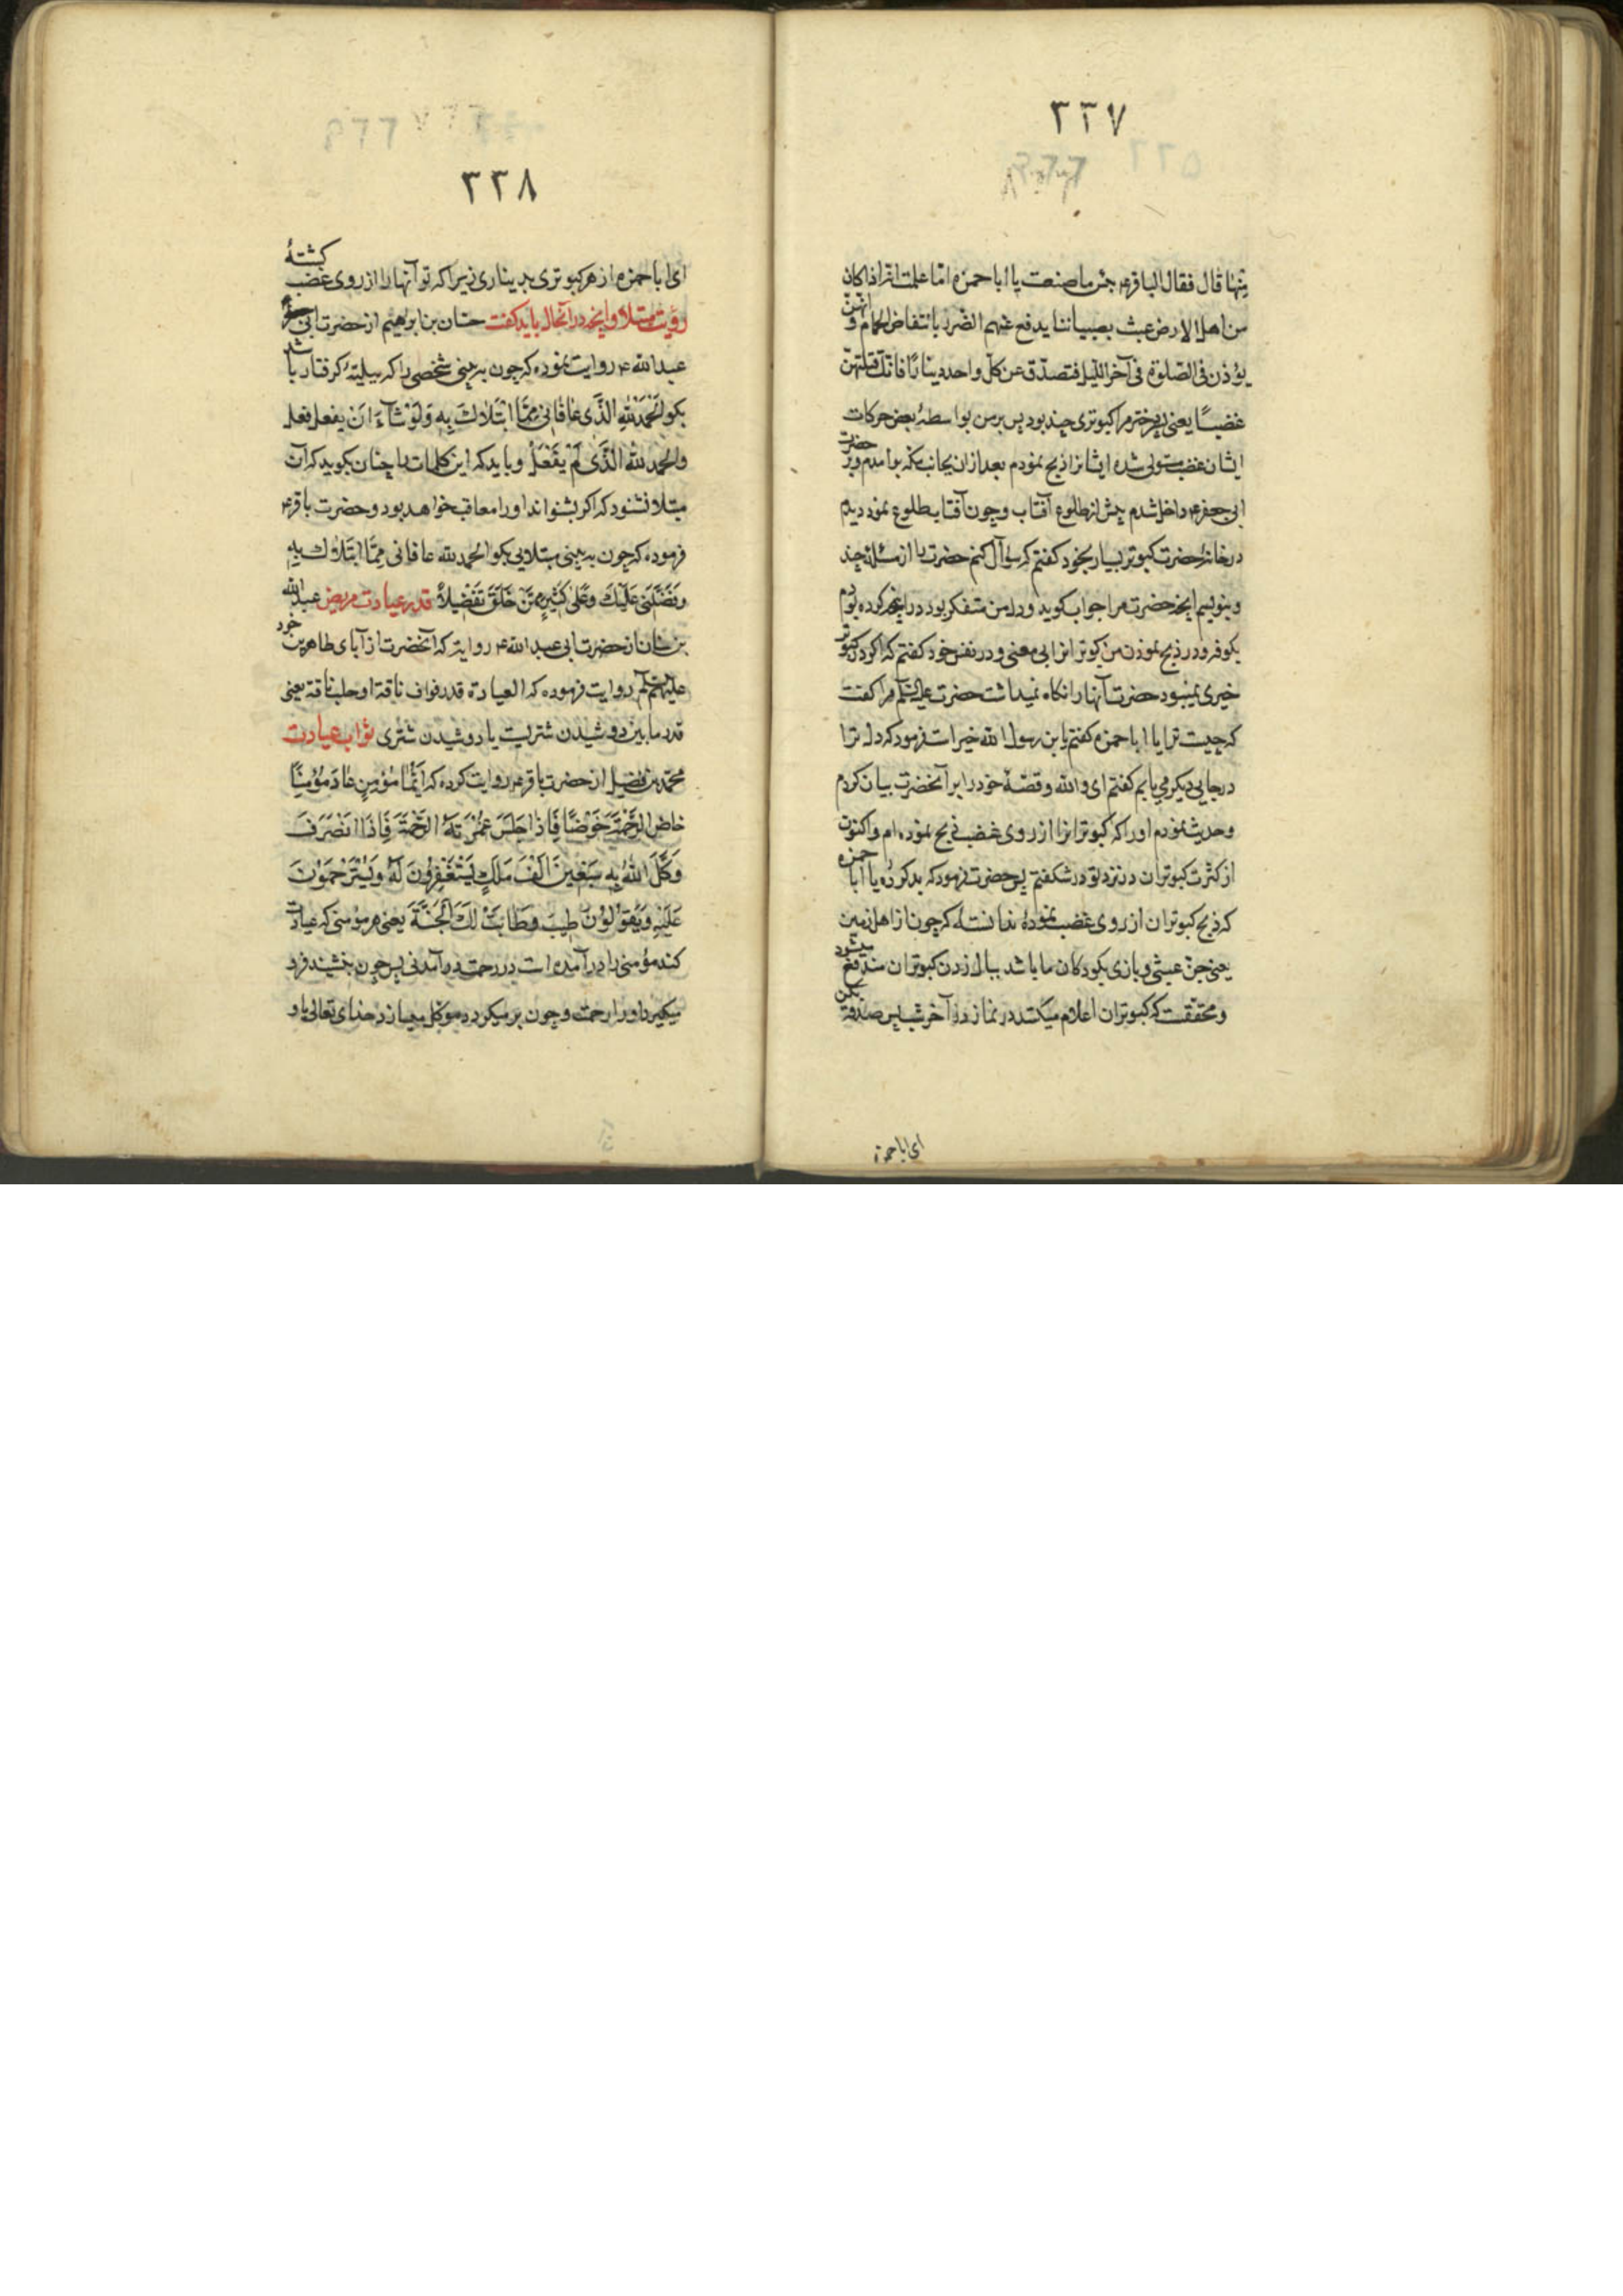 ۳۳۷
منها قال فقال الباقر۴ بئس ما صنعت یا ابا حمزه اما علمت انه اذا کان
من اهل الارض عبث بصبیاننا یدفع عنهم الضرر بانتفاض الحمام و انهن
یؤذن فی الصلوة فی آخر اللیل فتصدق عن کل واحد دینارا فانک قتلتهن
غضبًا یعنی دختر مرا کبوتری چند بود پس بر من بواسطهٔ بعض حرکات
ایشان غضب مستولی شده ایشانرا ذبح نمودم بعد از ان بجانب مکه بر امدم و بر حضرت
ابی جعفر۴ داخل شدم پیش از طلوع آفتاب و چون آفتاب طلوع نمود دیدم
در خانهٔ حضرت کبوتر بسیار بخود کفتم که سوال کنم حضرت را از مسئلهٔ چند
و بنویسم انچه حضرت مرا جواب کوید و دل من متفکر بود در انچه کرده بودم
بکوفه و در ذبح نمودن من کبوترانرا بی معنی و در نفس خود کفتم که اکر در کبوتر
خیری نمیبود حضرت آنها را نکاه نمیداشت حضرت علیه السلم مرا کفت
که چیست ترا یا ابا حمزه کفتم یا بن رسول الله خیر است فرمود که دل ترا
در جایی دیکر می یابم کفتم ای والله و قصهٔ خود را برا آنحضرت بیان کردم
و حدیث نمودم او را که کبوترانرا از روی غضب ذبح نموده ام و اکنون
از کثرت کبوتران در نزد تو در شکفتم پس حضرت فرمود که بد کردهٔ یا ابا حمزه
که ذبح کبوتران از روی غضب نمودهٔ ندانستهٔ که چون از اهل زمین
یعنی جن عبثی و بازی بکودکان ما باشد ببال زدن کبوتران مندفع میشود
و محققست که کبوتران اعلام میکنند در نماز در آخر شب پس صدقه بکن
ای ابا حمزه
۳۳۸
ای ابا حمزه از هر کبوتری بدیناری زیرا که تو آنها را از روی غضب کشتهٔ
رؤیت مبتلا و انچه در آنحال باید کفت حنان بن ابرهیم از حضرت ابی جعفر
عبدالله ۴ روایت نموده که چون به بینی شخصی را که ببلیهٔ کرفتار باشد
بکو الحمد لله الذی عافانی مما ابتلاک به ولو شاء ان یفعل فعل
والحمد لله الذی لم یفعل و باید که این کلمات را چنان بکوید که آن
مبتلا نشنود که اکر بشنواند او را معاقب خواهد بود و حضرت باقر۴
فرموده که چون به بینی مبتلایی بکو الحمد لله عافانی مما ابتلاک به
وفضلنی علیک وعلی کثیر ممن خلق تفضیلا قدر عیادت مریض عبدالله
بن سنان از حضرت ابی عبدالله ۴ روایة که آنحضرت از آبای طاهرین خود
علیهم السلم روایت فرموده که العیادة قدر فواق ناقة او حلب ناقة یعنی
قدر ما بین دوشیدن شتریست یا دوشیدن شتری ثواب عیادت
محمد بن فضیل از حضرت باقر۴ روایت کرده که ایما مؤمن عاد مؤمنًا
خاض الرحمة خوضًا فاذا جلس غمرته الرحمة فاذا انصرف
وکل الله به سبعین الف ملک یستغفرون له ویسترحمون
علیه ویقولون طبت وطابت لک الجنة یعنی هر مؤمنی که عیادت
کند مؤمنی را در آمده است در رحمت در آمدنی پس چون بنشیند فرو
میکیرد او را رحمت و چون بر میکردد موکل میسازد خدای تعالی باو